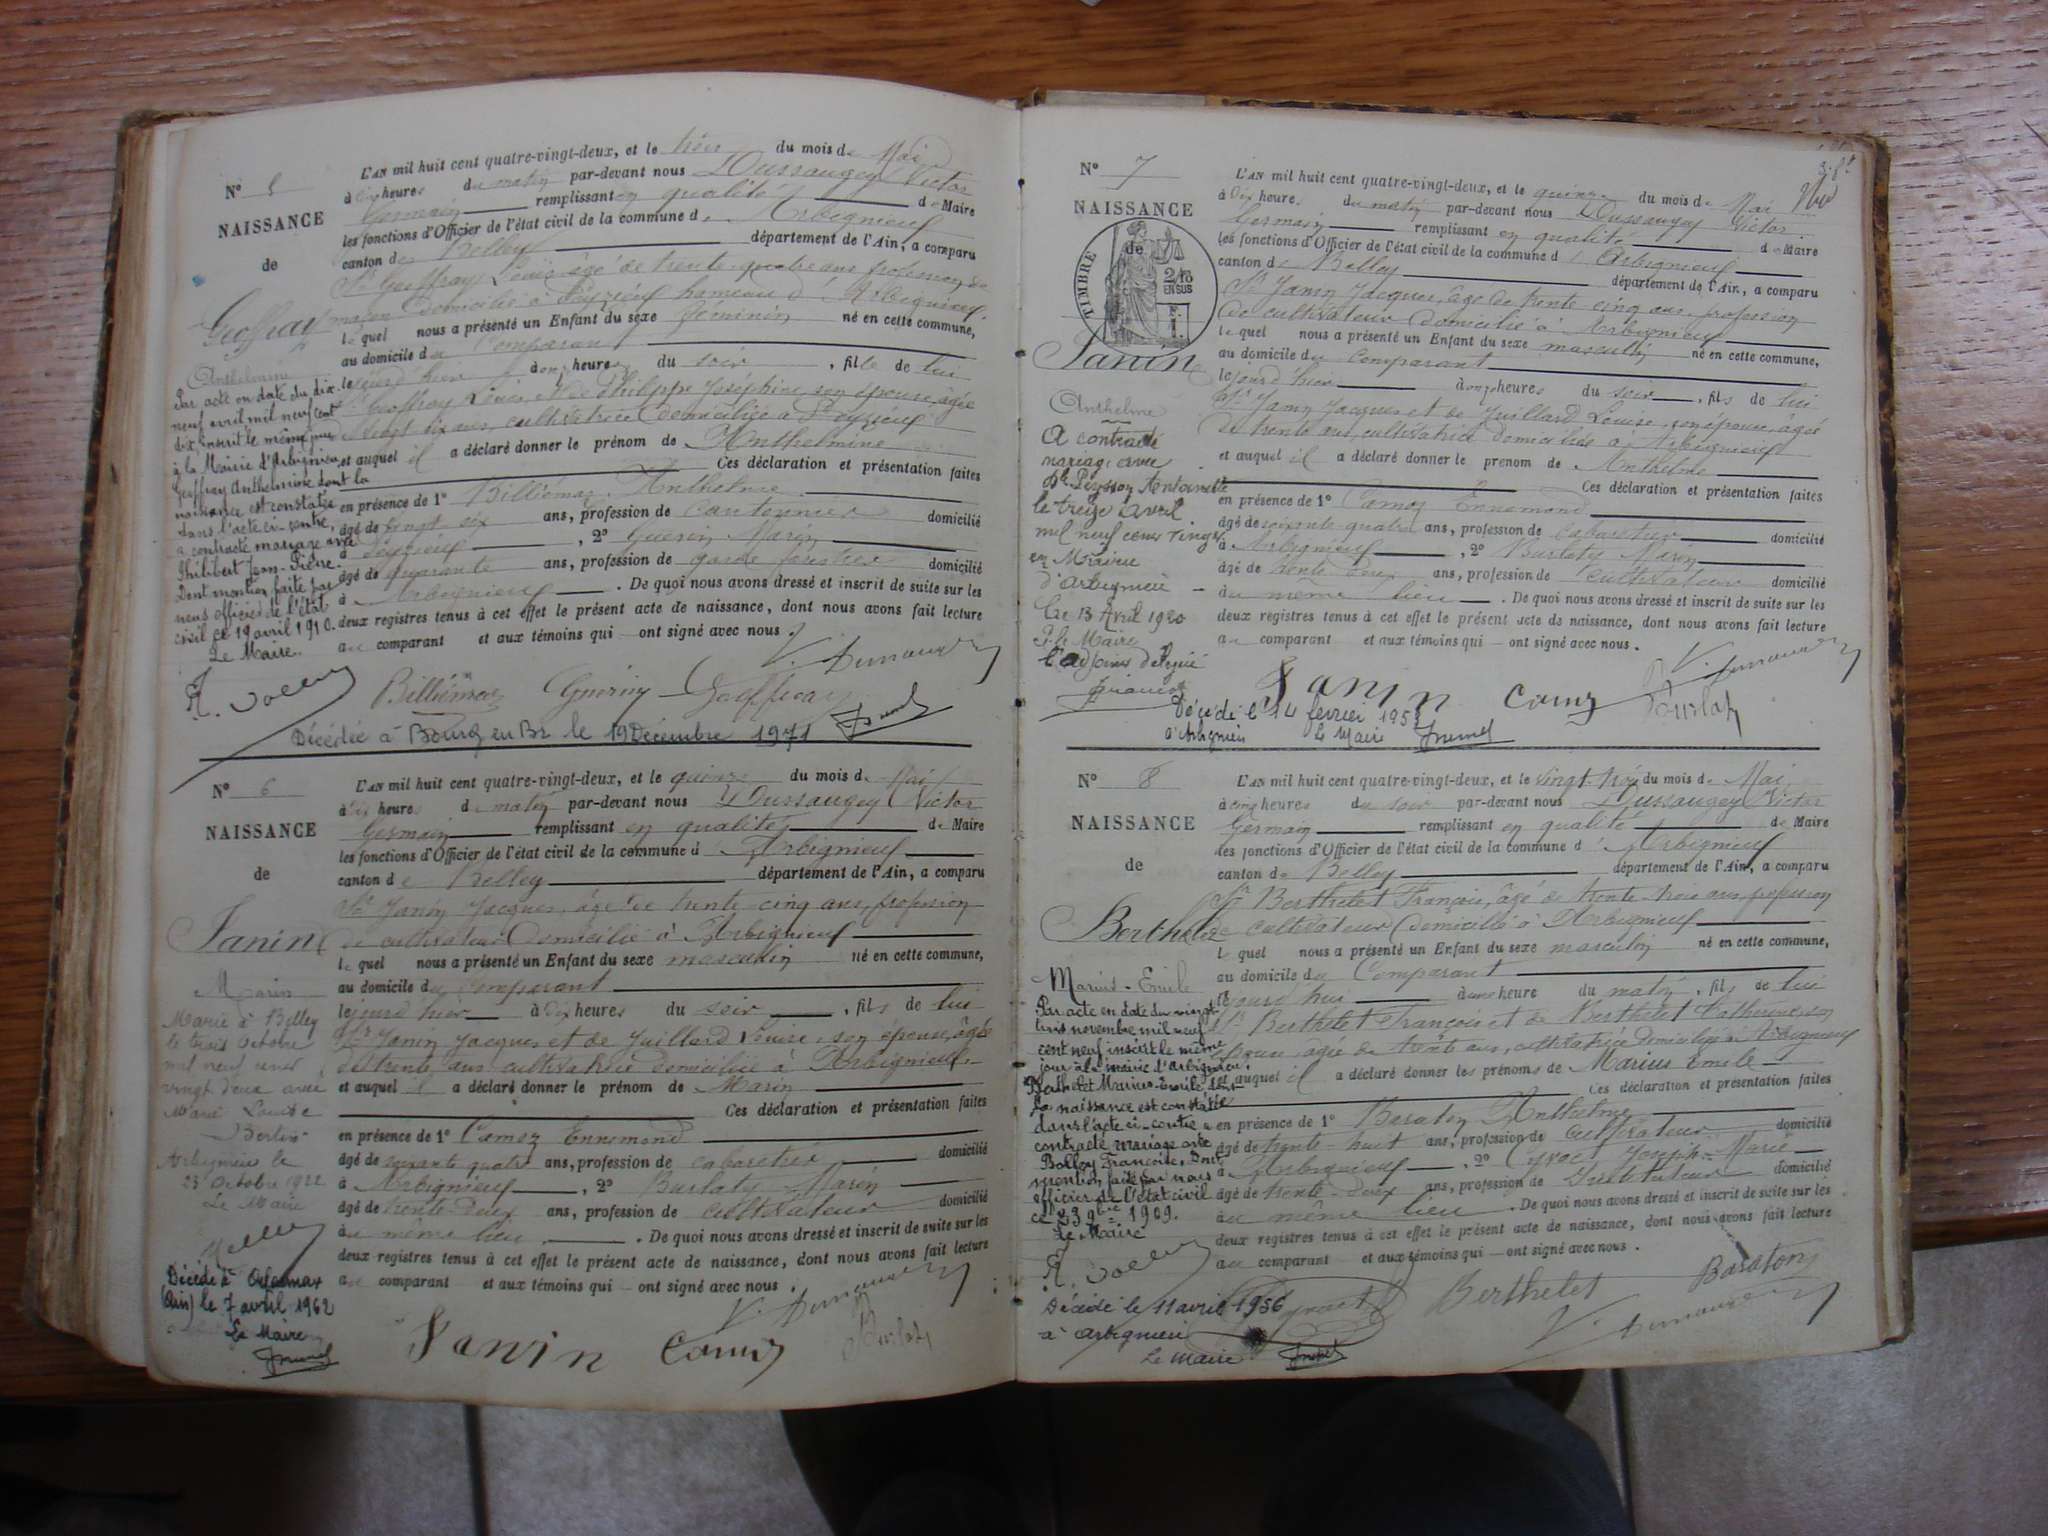 N° 5
NAISSANCE
de
Geoffray
Anthelmine
Par acte en date du dix-
neuf avril mil neuf cent
dix, inscrit le même jour
à la Mairie d'Arbignieu,
Geoffray Anthelmine dont la
naissance est constatée
dans l'acte ci-contre,
a contracté mariage avec
Philibert Jean-Pierre.
Dont mention faite par
nous officier de l'état
civil ce 19 avril 1910.
Le Maire.
L'AN mil huit cent quatre-vingt-deux, et le trois du mois de Mai
à dix heures du matin par-devant nous Dussaugey Victor
Germain remplissant en qualité de Maire
les fonctions d'Officier de l'état civil de la commune d' Arbignieuf
canton de Belley département de l'Ain, a comparu
Sr Geoffray Louis âgé de trente-quatre ans profession de
maçon domicilié à Peyzieuf hameau d'Arbignieuf.
lequel nous a présenté un Enfant du sexe féminin né en cette commune,
au domicile du Comparant
le jourd'hier à onze heures du soir, fille de lui
Sr Geoffray Louis et de Philippe Joséphine, son épouse, âgée
de vingt six ans, cultivatrice domiciliée à Peyzieuf
et auquel il a déclaré donner le prénom de Anthelmine
Ces déclaration et présentation faites
en présence de 1° Billiémaz Anthelme
âgé de vingt six ans, profession de cantonnier domicilié
à Peyzieuf, 2° Guérin Marin
âgé de quarante ans, profession de garde forestier domicilié
à Arbignieuf. De quoi nous avons dressé et inscrit de suite sur les
deux registres tenus à cet effet le présent acte de naissance, dont nous avons fait lecture
au comparant et aux témoins qui ont signé avec nous.
Billiémaz Guérin Geoffray
Décédée à Bourg en Br. le 19 Décembre 1971
N° 6
NAISSANCE
de
Janin
Marin
Marié à Belley
le trois Octobre
mil neuf cent
vingt deux avec
Marie Louise
Bertin
Arbignieu le
23 Octobre 1922
Le Maire
Décédé à
(Ain) le 7 avril 1962
Le Maire
L'AN mil huit cent quatre-vingt-deux, et le quinze du mois de Mai
à dix heures du matin par-devant nous Dussaugey Victor
Germain remplissant en qualité de Maire
les fonctions d'Officier de l'état civil de la commune d' Arbignieuf
canton de Belley département de l'Ain, a comparu
Sr Janin Jacques, âgé de trente-cinq ans, profession
de cultivateur domicilié à Arbignieuf
lequel nous a présenté un Enfant du sexe masculin né en cette commune,
au domicile du comparant
le jourd'hier à dix heures du soir, fils de lui
Sr Janin Jacques et de Juillard Louise, son épouse, âgée
de trente ans cultivatrice domiciliée à Arbignieuf
et auquel il a déclaré donner le prénom de Marin
Ces déclaration et présentation faites
en présence de 1° Camoz Ennemond
âgé de soixante quatre ans, profession de cabaretier domicilié
à Arbignieuf, 2° Burlaty Marin
âgé de trente-deux ans, profession de cultivateur domicilié
au même lieu. De quoi nous avons dressé et inscrit de suite sur les
deux registres tenus à cet effet le présent acte de naissance, dont nous avons fait lecture
au comparant et aux témoins qui ont signé avec nous.
Janin Camoz
N° 7
NAISSANCE
de
TIMBRE
Janin
Anthelme
A contracté
mariage avec
Dlle Peysson Antoinette
le treize avril
mil neuf cent vingt
en Mairie
d'Arbignieu
Le 13 Avril 1920
P. le Maire
L'AN mil huit cent quatre-vingt-deux, et le quinze du mois de Mai
à dix heures du matin par-devant nous Dussaugey Victor
Germain remplissant en qualité de Maire
les fonctions d'Officier de l'état civil de la commune d' Arbignieuf
canton de Belley département de l'Ain, a comparu
Sr Janin Jacques, âgé de trente cinq ans, profession
de cultivateur domicilié à Arbignieuf
lequel nous a présenté un Enfant du sexe masculin né en cette commune,
au domicile du comparant
le jourd'hier à onze heures du soir, fils de lui
Sr Janin Jacques et de Juillard Louise, son épouse, âgée
de trente ans, cultivatrice domiciliée à Arbignieuf
et auquel il a déclaré donner le prenom de Anthelme
Ces déclaration et présentation faites
en présence de 1° Camoz Ennemond
âgé de soixante-quatre ans, profession de cabaretier domicilié
à Arbignieuf, 2° Burlaty Marin
âgé de trente deux ans, profession de cultivateur domicilié
au même lieu. De quoi nous avons dressé et inscrit de suite sur les
deux registres tenus à cet effet le présent acte de naissance, dont nous avons fait lecture
au comparant et aux témoins qui ont signé avec nous.
Janin Camoz
Décédé le 14 février
à Arbignieu Le Maire
N° 8
NAISSANCE
de
Berthelet
Marius-Emile
Par acte en date du vingt
trois novembre mil neuf
cent neuf inscrit le même
jour à la mairie d'Arbignieu,
Berthelet Marius-Emile dont
la naissance est constatée
dans l'acte ci-contre a
contracté mariage avec
Bolloy Françoise, Dont
mention faite par nous
officier de l'état civil
ce 23 9bre 1909.
Le Maire
Décédé le 11 avril 1956
à Arbignieu
Le Maire
L'AN mil huit cent quatre-vingt-deux, et le vingt-trois du mois de Mai
à cinq heures du soir par-devant nous Dussaugey Victor
Germain remplissant en qualité de Maire
les fonctions d'Officier de l'état civil de la commune d' Arbignieuf
canton de Belley département de l'Ain, a comparu
Sr Berthelet François, âgé de trente-trois ans, profession
de cultivateur domicilié à Arbignieuf
lequel nous a présenté un Enfant du sexe masculin né en cette commune,
au domicile du Comparant
le jourd'hui à une heure du matin, fils de lui
Sr Berthelet François et de Berthelet Catherine, son
épouse, âgée de trente ans, cultivatrice domiciliée à Arbignieuf
et auquel il a déclaré donner les prénoms de Marius Emile
Ces déclaration et présentation faites
en présence de 1° Baraton Anthelme
âgé de trente-huit ans, profession de cultivateur domicilié
à Arbignieuf, 2° Joseph-Marie
âgé de trente-deux ans, profession de Instituteur domicilié
au même lieu. De quoi nous avons dressé et inscrit de suite sur les
deux registres tenus à cet effet le présent acte de naissance, dont nous avons fait lecture
au comparant et aux témoins qui ont signé avec nous.
Berthelet Baraton